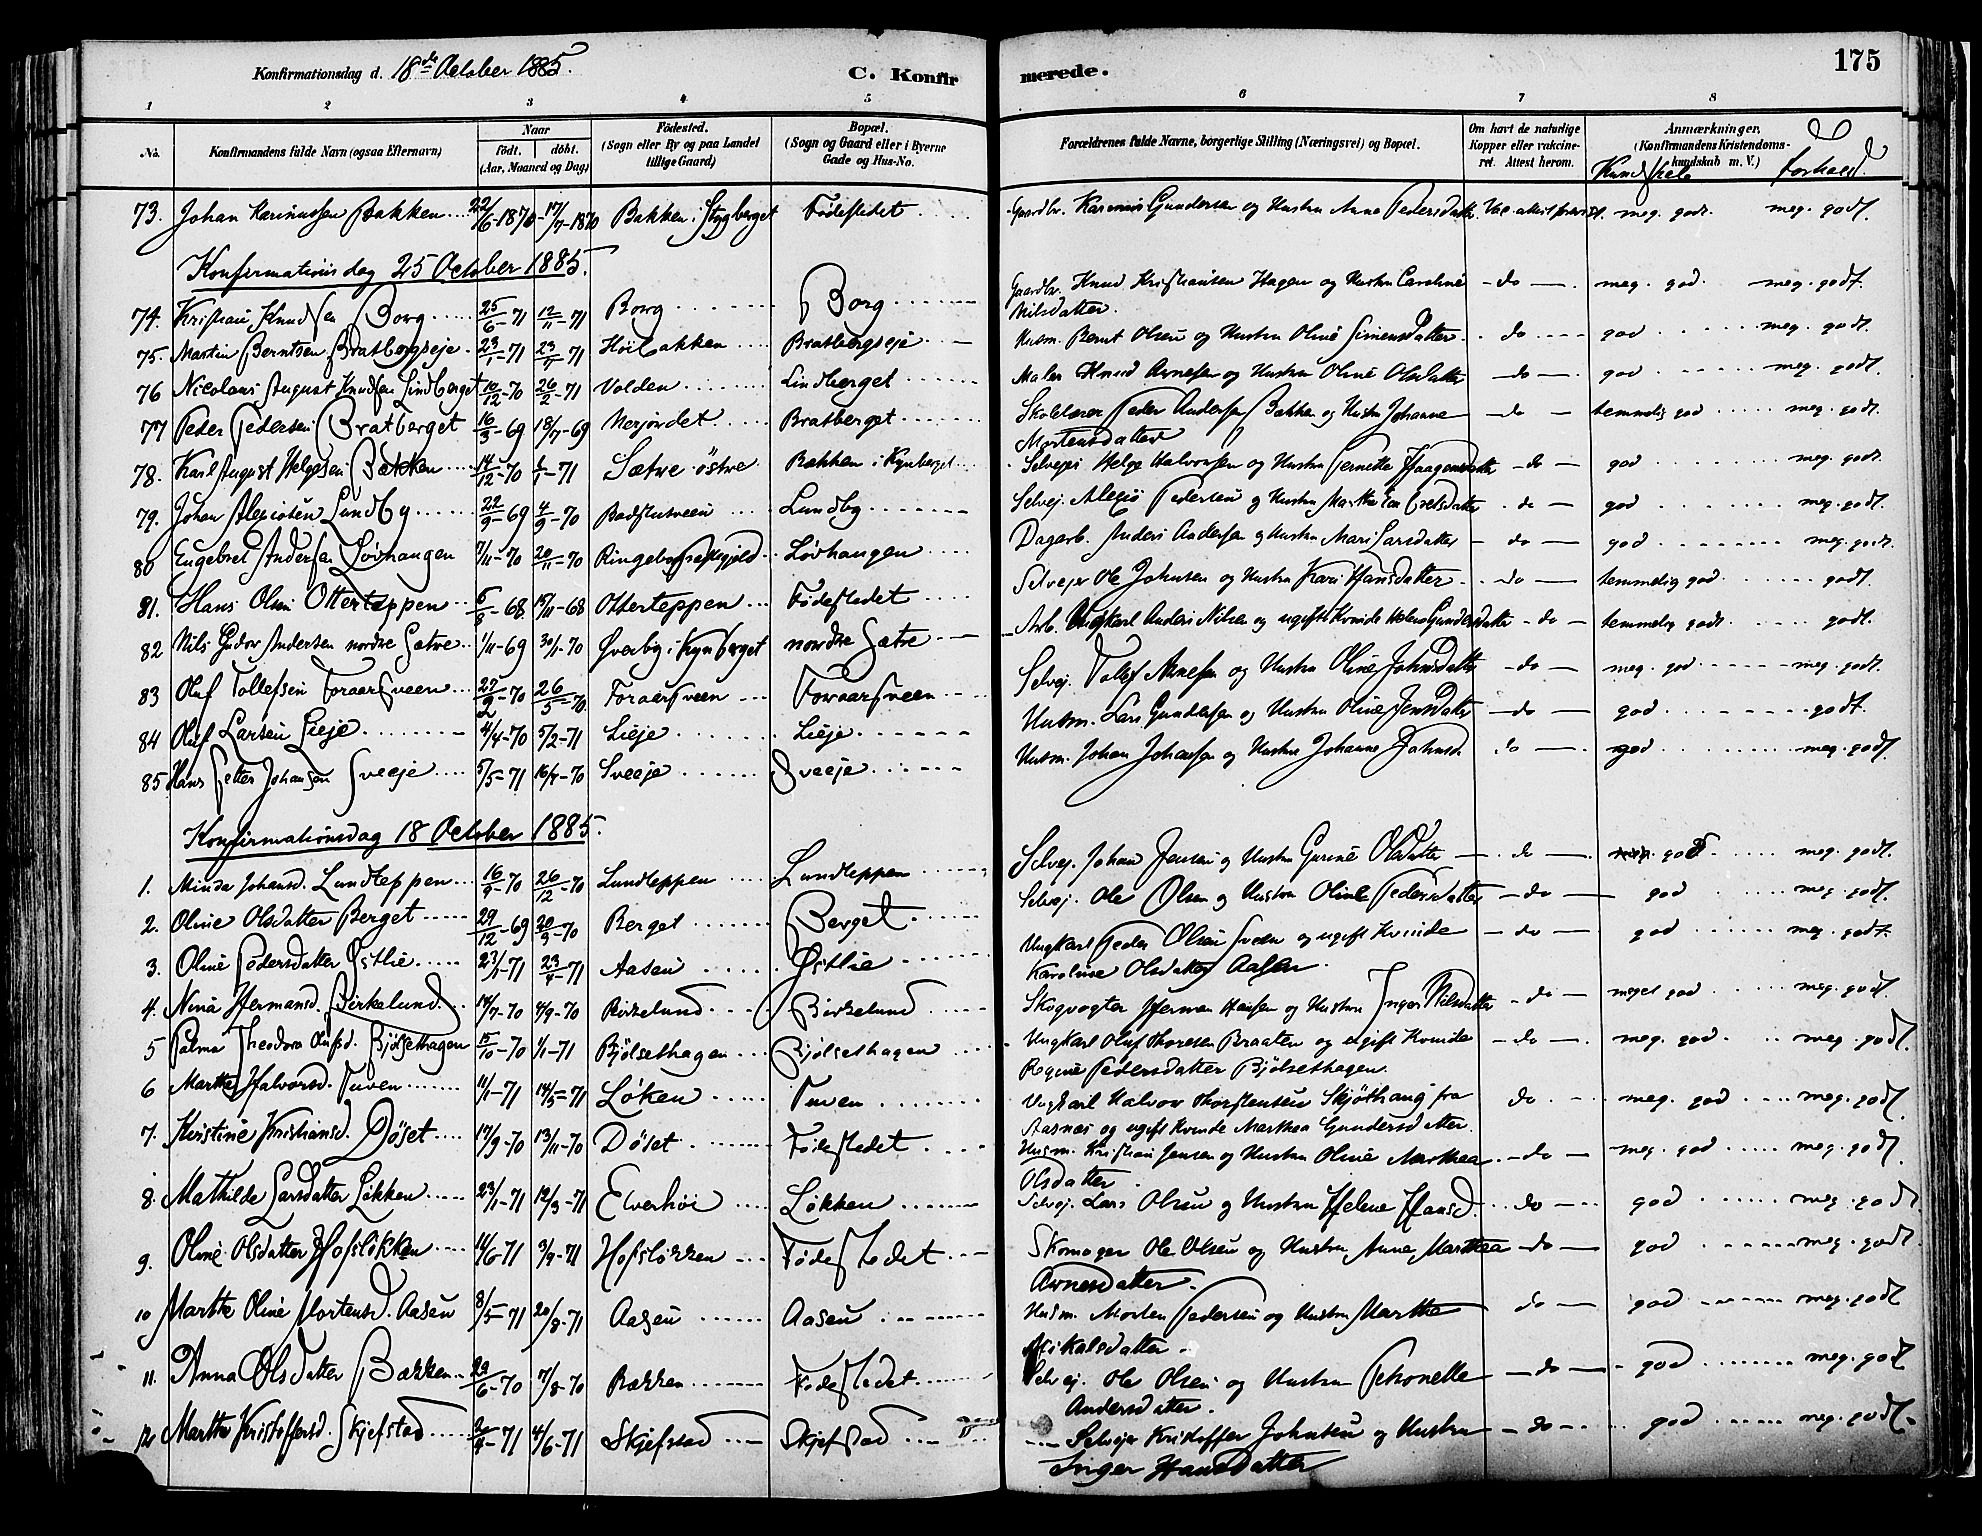 Konfirmationsdag d. 18de October 1885.
C. Konfirmerede.
175
1 2 3 4 5 6 7 8
No.
Konfirmandens fulde Navn (ogsaa Efternavn)
Naar
födt. döbt.
(Aar, Maaned og Dag)
Födested.
(Sogn eller By og paa Landet
tillige Gaard)
Bopæl.
(Sogn og Gaard eller i Byerne
Gade og Hus-No.
Forældrenes fulde Navne, borgerlige Stilling (Næringsvei) og Bopæl.
Om havt de naturlige
Kopper eller vakcine-
ret. Attest herom.
Anmærkninger.
(Konfirmandens Kristendoms-
kundskab m. V.)
Kundskab forhold.
73. Johan Karinussen Bakken 22/6-1870 17/7-1870 Bakken i Stygberget Födestedet Gaardbr. Karinus Gundersen og Hustru Anne Pedersdatter Vac. attest meg. godt. meg. godt.
Konfirmationsdag 25 October 1885.
74. Kristian Knudsen Borg 25/6-71 12/11-71 Borg Borg Gaardbr. Knud Kristiansen Hagen og Hustru Caroline do meg. god meg. godt.
Nilsdatter.
75. Martin Berntsen Bratbergseje 23/1-71 23/7-71 Höibakken Bratbergseje Husm. Bernt Olsen og Hustru Oline Simensdatter do god meg. godt.
76 Nicolaus August Knudsen Lindberget 10/12-70 26/2-71 Volden Lindberget Maler Knud Arnesen og Hustru Oline Olsdatter do god meg. godt.
77 Peder Pedersen Bratberget 16/3-69 18/7-69 Nerjordet Bratberget Skolelærer Peder Andersen Bakken og Hustru Johanne do temmelig god meg. godt.
Mortensdatter
78. Karl August Helgesen Bækken 14/12-70 1/1-71 Sætre östre Bækken i Kynberget Selvejer Helge Halvorsen og Hustru Pernelle Haagensdatter do god meg. godt.
79. Johan Alexisen Lundby 22/9-69 4/9-70 Badstusveen Lundby Selvej. Alexis Pedersen og Hustru Marthe do god meg. godt.
80 Engebret Andersen Lövhaugen 7/11-70 20/11-70 Lövhaugen Dagarb. Anders Andersen og Hustru Mari Larsdatter do god meg. godt.
81. Hans Olsen Otterteppen 5/8-68 15/11-68 Otterteppen Födestedet Selvejer Ole Johnsen og Hustru Kari Hansdatter do temmelig god godt.
82 Nils Gudor Andersen nordre Sætre 1/11-69 30/1-70 Øverby i Kynberget nordre Sætre Arb. Ungkarl Anders Nilsen og ugift Kvinde Helene Gundersdatter do temmelig godt godt.
83 Oluf Tollefsen Foraarsveen 27/2-70 26/5-70 Foraarsveen Foraarsveen Selvej. Tollef Arnesen og Hustru Oline Johnsdatter do meg. god meg. godt.
84 Oluf Larsen Lieje 4/4-70 5/2-71 Lieje Lieje Husm. Lars Gundersen og Hustru Oline Jensdatter do god godt.
85 Hans Petter Johansen Sveeje 5/5-71 16/7-70 Sveeje Sveeje Husm. Johan Johansen og Hustru Johanne Johnsd. do god meg. godt.
Konfirmationsdag 18 October 1885.
1. Minda Johansd. Lundteppen 16/9-70 26/12-70 Lundteppen Lundteppen Selvej. Johan Jensen og Hustru Gurine Olsdatter do god meg. godt.
2. Oline Olsdatter Berget 29/12-69 20/3-70 Berget Berget Selvej. Ole Olsen og Hustru Oline Pedersdatter do god meg. godt.
3. Oline Pedersdatter Östlie 23/1-71 23/4-71 Aasen Østlie Ungkarl Peder Olsen Sveen og ugift Kvinde do god meg. godt.
Karoline Olsdatter Aasen.
4. Nina Hermansd. Birkelund 14/7-70 4/9-70 Birkelund Birkelund Skogvogter Herman Hansen og Hustru Inger Nilsdatter do meget god meg. godt.
5 Palma Theodora Olufsd. Bjölsethagen 15/10-70 1/1-71 Bjölsethagen Bjölsethagen Ungkarl Oluf Thoresen Braaten og ugift Kvinde do meg. god meg. godt.
Regine Pedersdatter Bjölsethagen.
6 Marthe Halvorsd. Tuven 11/1-71 14/5-71 Löken Tuven Ungkarl Halvor Thorstensen Skjöthaug fra do meg. god meg. godt.
Aasnæs og ugift Kvinde Marthea Gundersdatter.
7. Kristine Kristiansd. Döset 17/9-70 13/11-70 Döset Födestedet Husm. Kristian Jensen og Hustru Oline Marthea do meg. god meg. godt.
Olsdatter.
8. Mathilde Larsdatter Løkken 23/1-71 12/3-71 Elverhöi Løkken Selvej. Lars Olsen og Hustru Helene Hansd. do god meg. godt.
9. Oline Olsdatter Hofslökken 11/6-71 3/9-71 Hofslökken Födestedet Skomager Ole Olsen og Hustru Anne Marthea do god meg. godt.
Arnesdatter.
10 Marthe Oline Mortensd. Aasen 8/5-71 20/8-71 Aasen Aasen Husm. Morten Pedersen og Hustru Marthe do god meg. godt
Mikalsdatter.
11. Anna Olsdatter Bækken 29/6-70 7/8-70 Bækken Födestedet Selvej. Ole Olsen og Hustru Petronelle do god meg. godt
Andersdatter.
12 Marthe Kristoffersd. Skjefstad 4/6-71 Skjefstad Skjefstad Selvejer Kristoffer Johnsen og Hustru do god meg. godt.
Inger Hansdatter